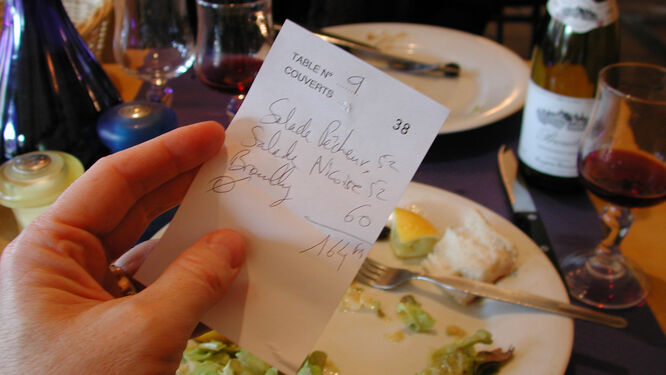 TABLE N° 9
COUVERTS
38
Salade Pêcheur, 52
Salade Niçoise 52
Brouilly 60
164 Frs